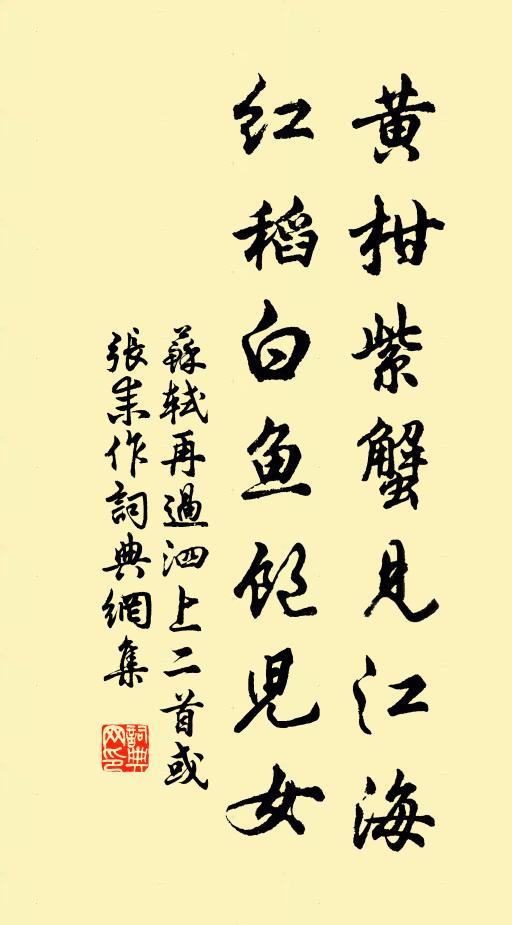 黄柑紫蟹見江海
红稻白鱼飽兒女
蘇軾再過泗上二首或
張耒作詞典網集
詞典网印